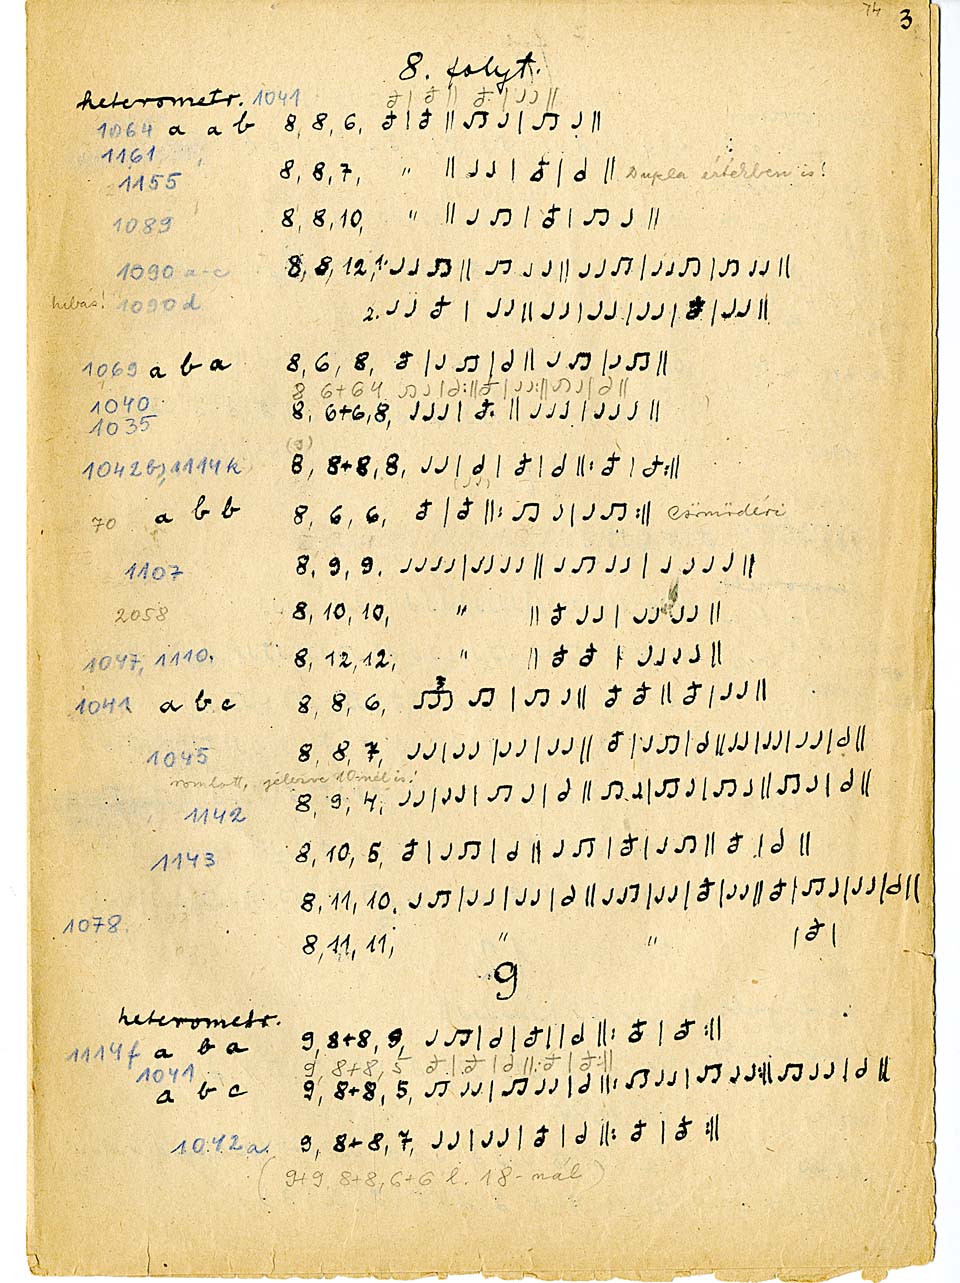 74 3
8. folyt.
heterometr. 1041
1064 a a b 8, 8, 6,
1161
1155 8, 8, 7, " Dupla értékben is!
1089 8, 8, 10, "
1090 a-c 8, 8, 12, 1.
hibás! 1090 d 2.
1069 a b a 8, 6, 8,
8 6+6 4
1040 8, 6+6, 8,
1035
1042 b, 1114 k 8, 8+8, 8,
70 a b b 8, 6, 6, Csömödéri
1107 8, 9, 9.
2058 8, 10, 10, "
1047, 1110. 8, 12, 12, "
1041 a b c 8, 8, 6, 3
1045 8, 8, 7,
romlott, jelezve 10-nél is!
1142 8, 9, 4,
1143 8, 10, 5,
8, 11, 10.
1078. 8, 11, 11, " "
9
heterometr.
1114 f a b a 9, 8+8, 9,
1041 9, 8+8, 5
a b c 9, 8+8, 5,
1042 a. 9, 8+8, 7,
(9+9, 8+8, 6+6 l. 18-nál)